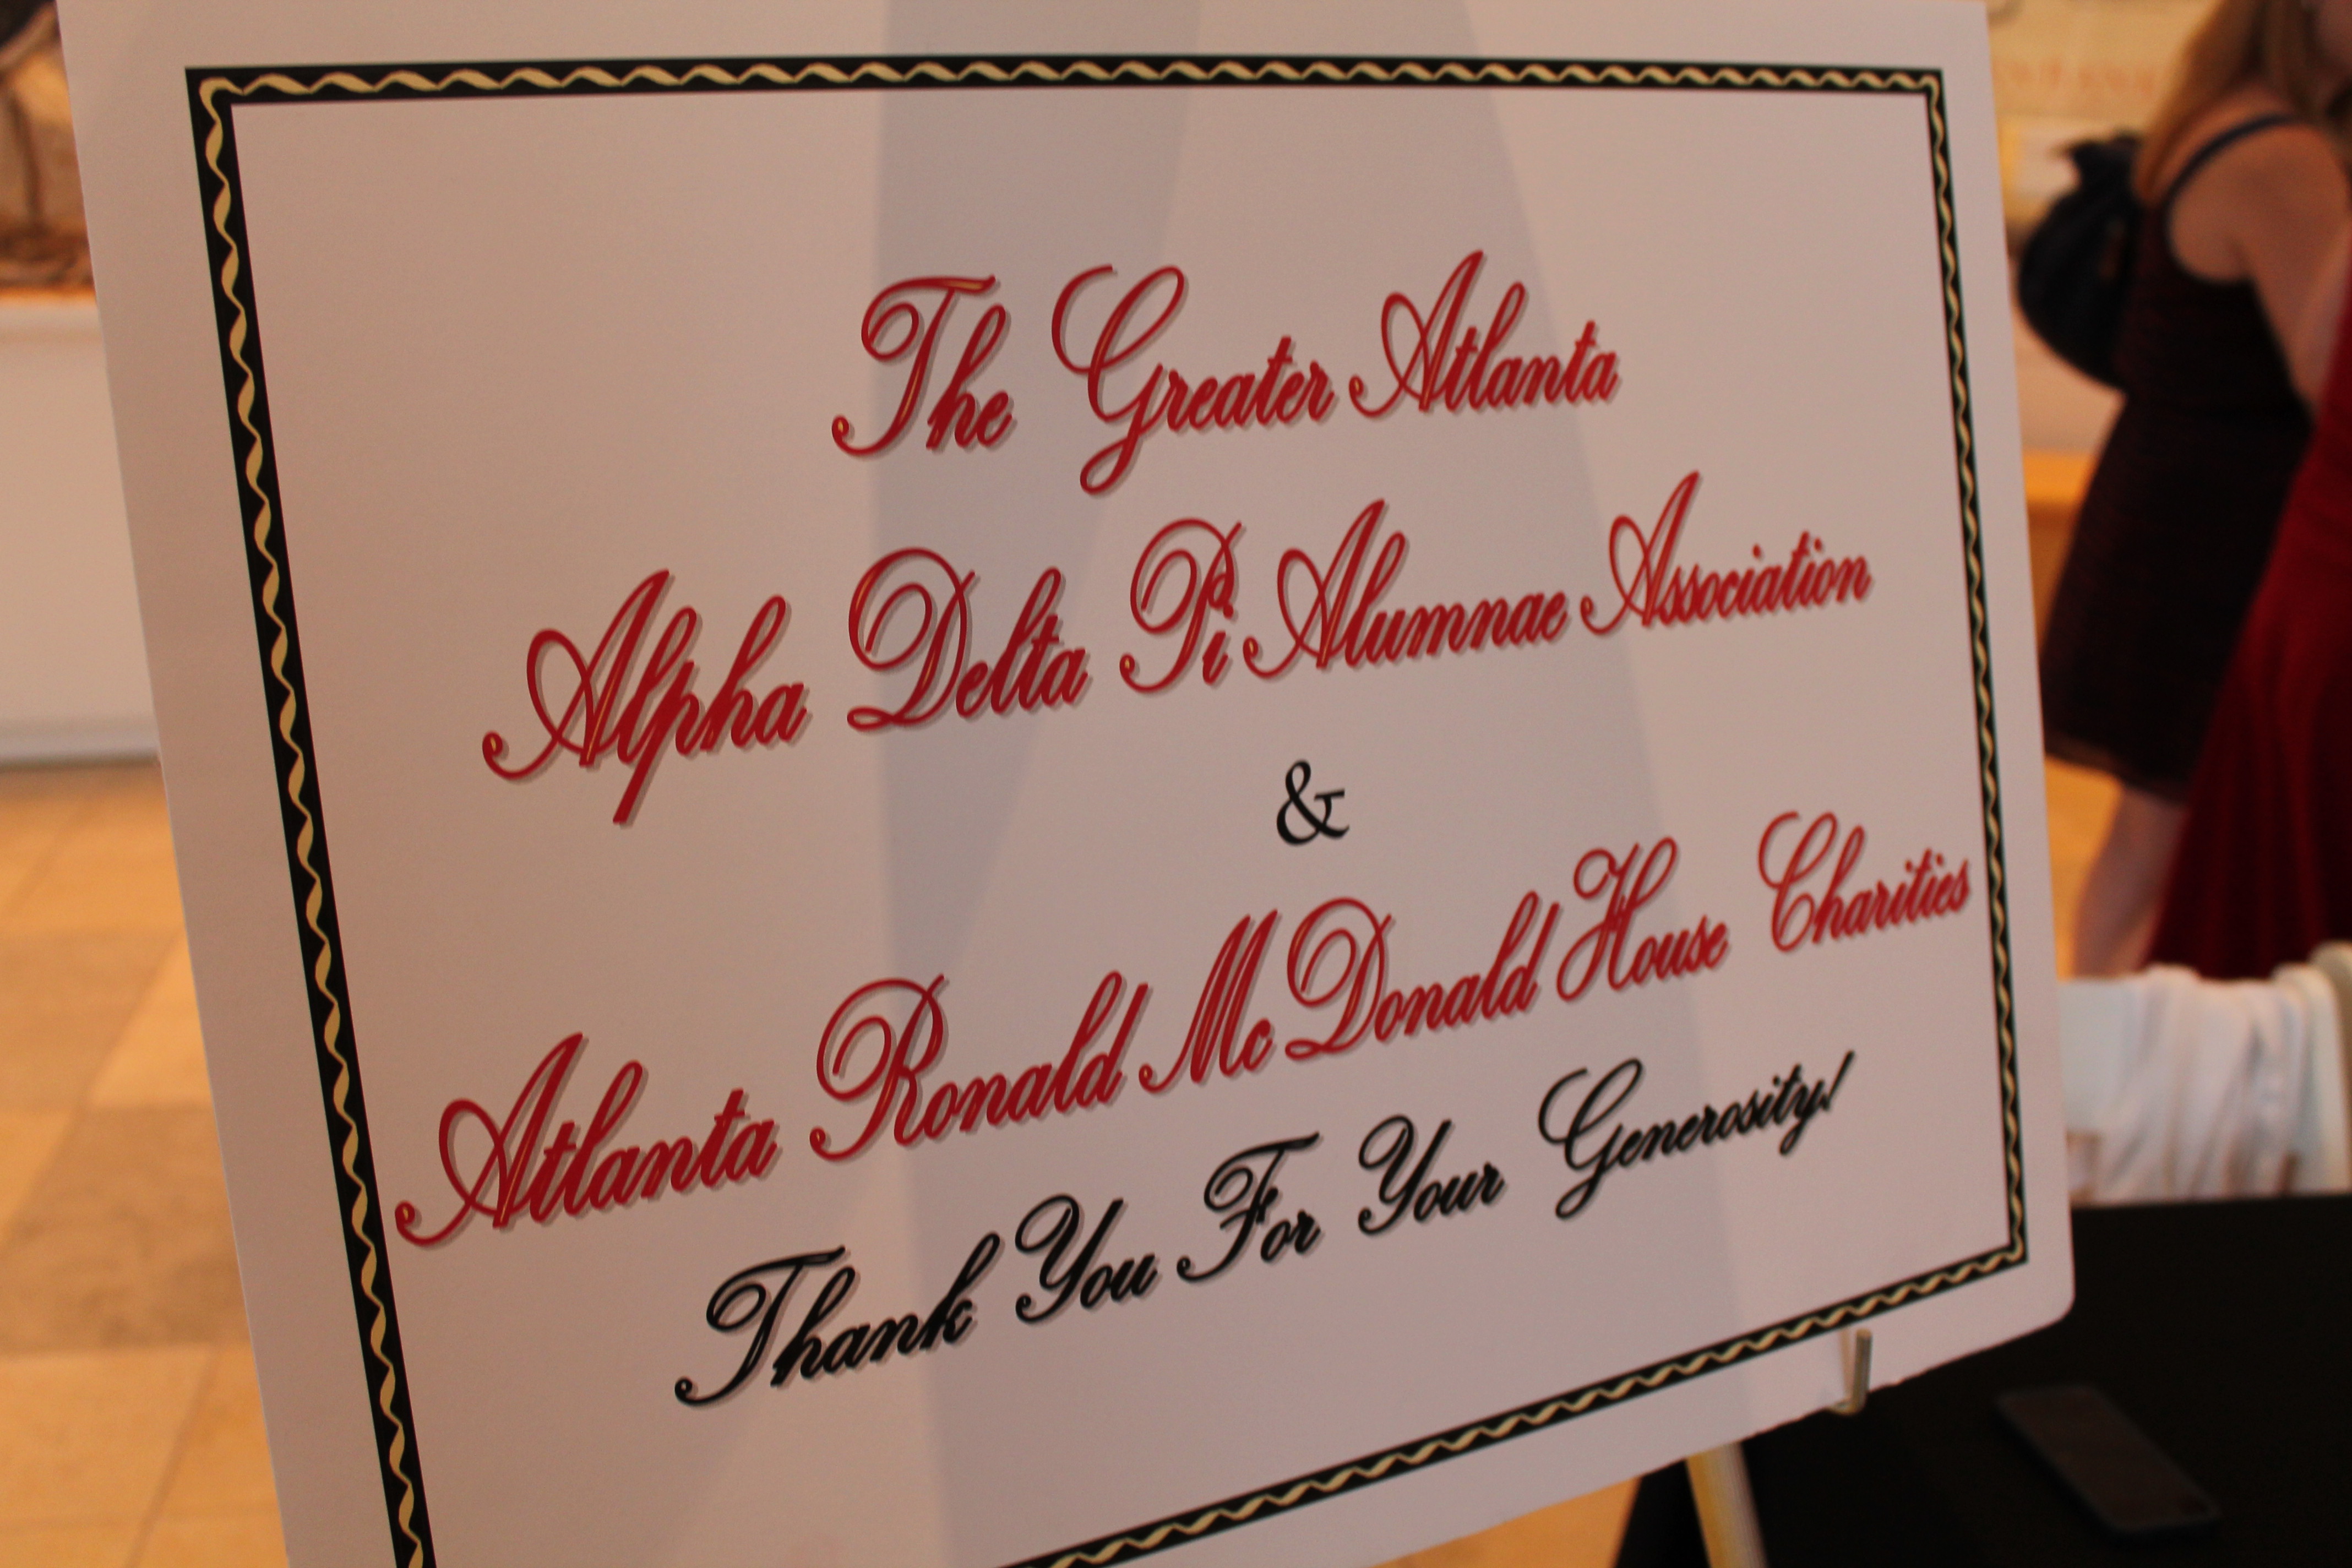 The Greater Atlanta
Alpha Delta Pi Alumnae Association
&
Atlanta Ronald McDonald House Charities
Thank You For Your Generosity!